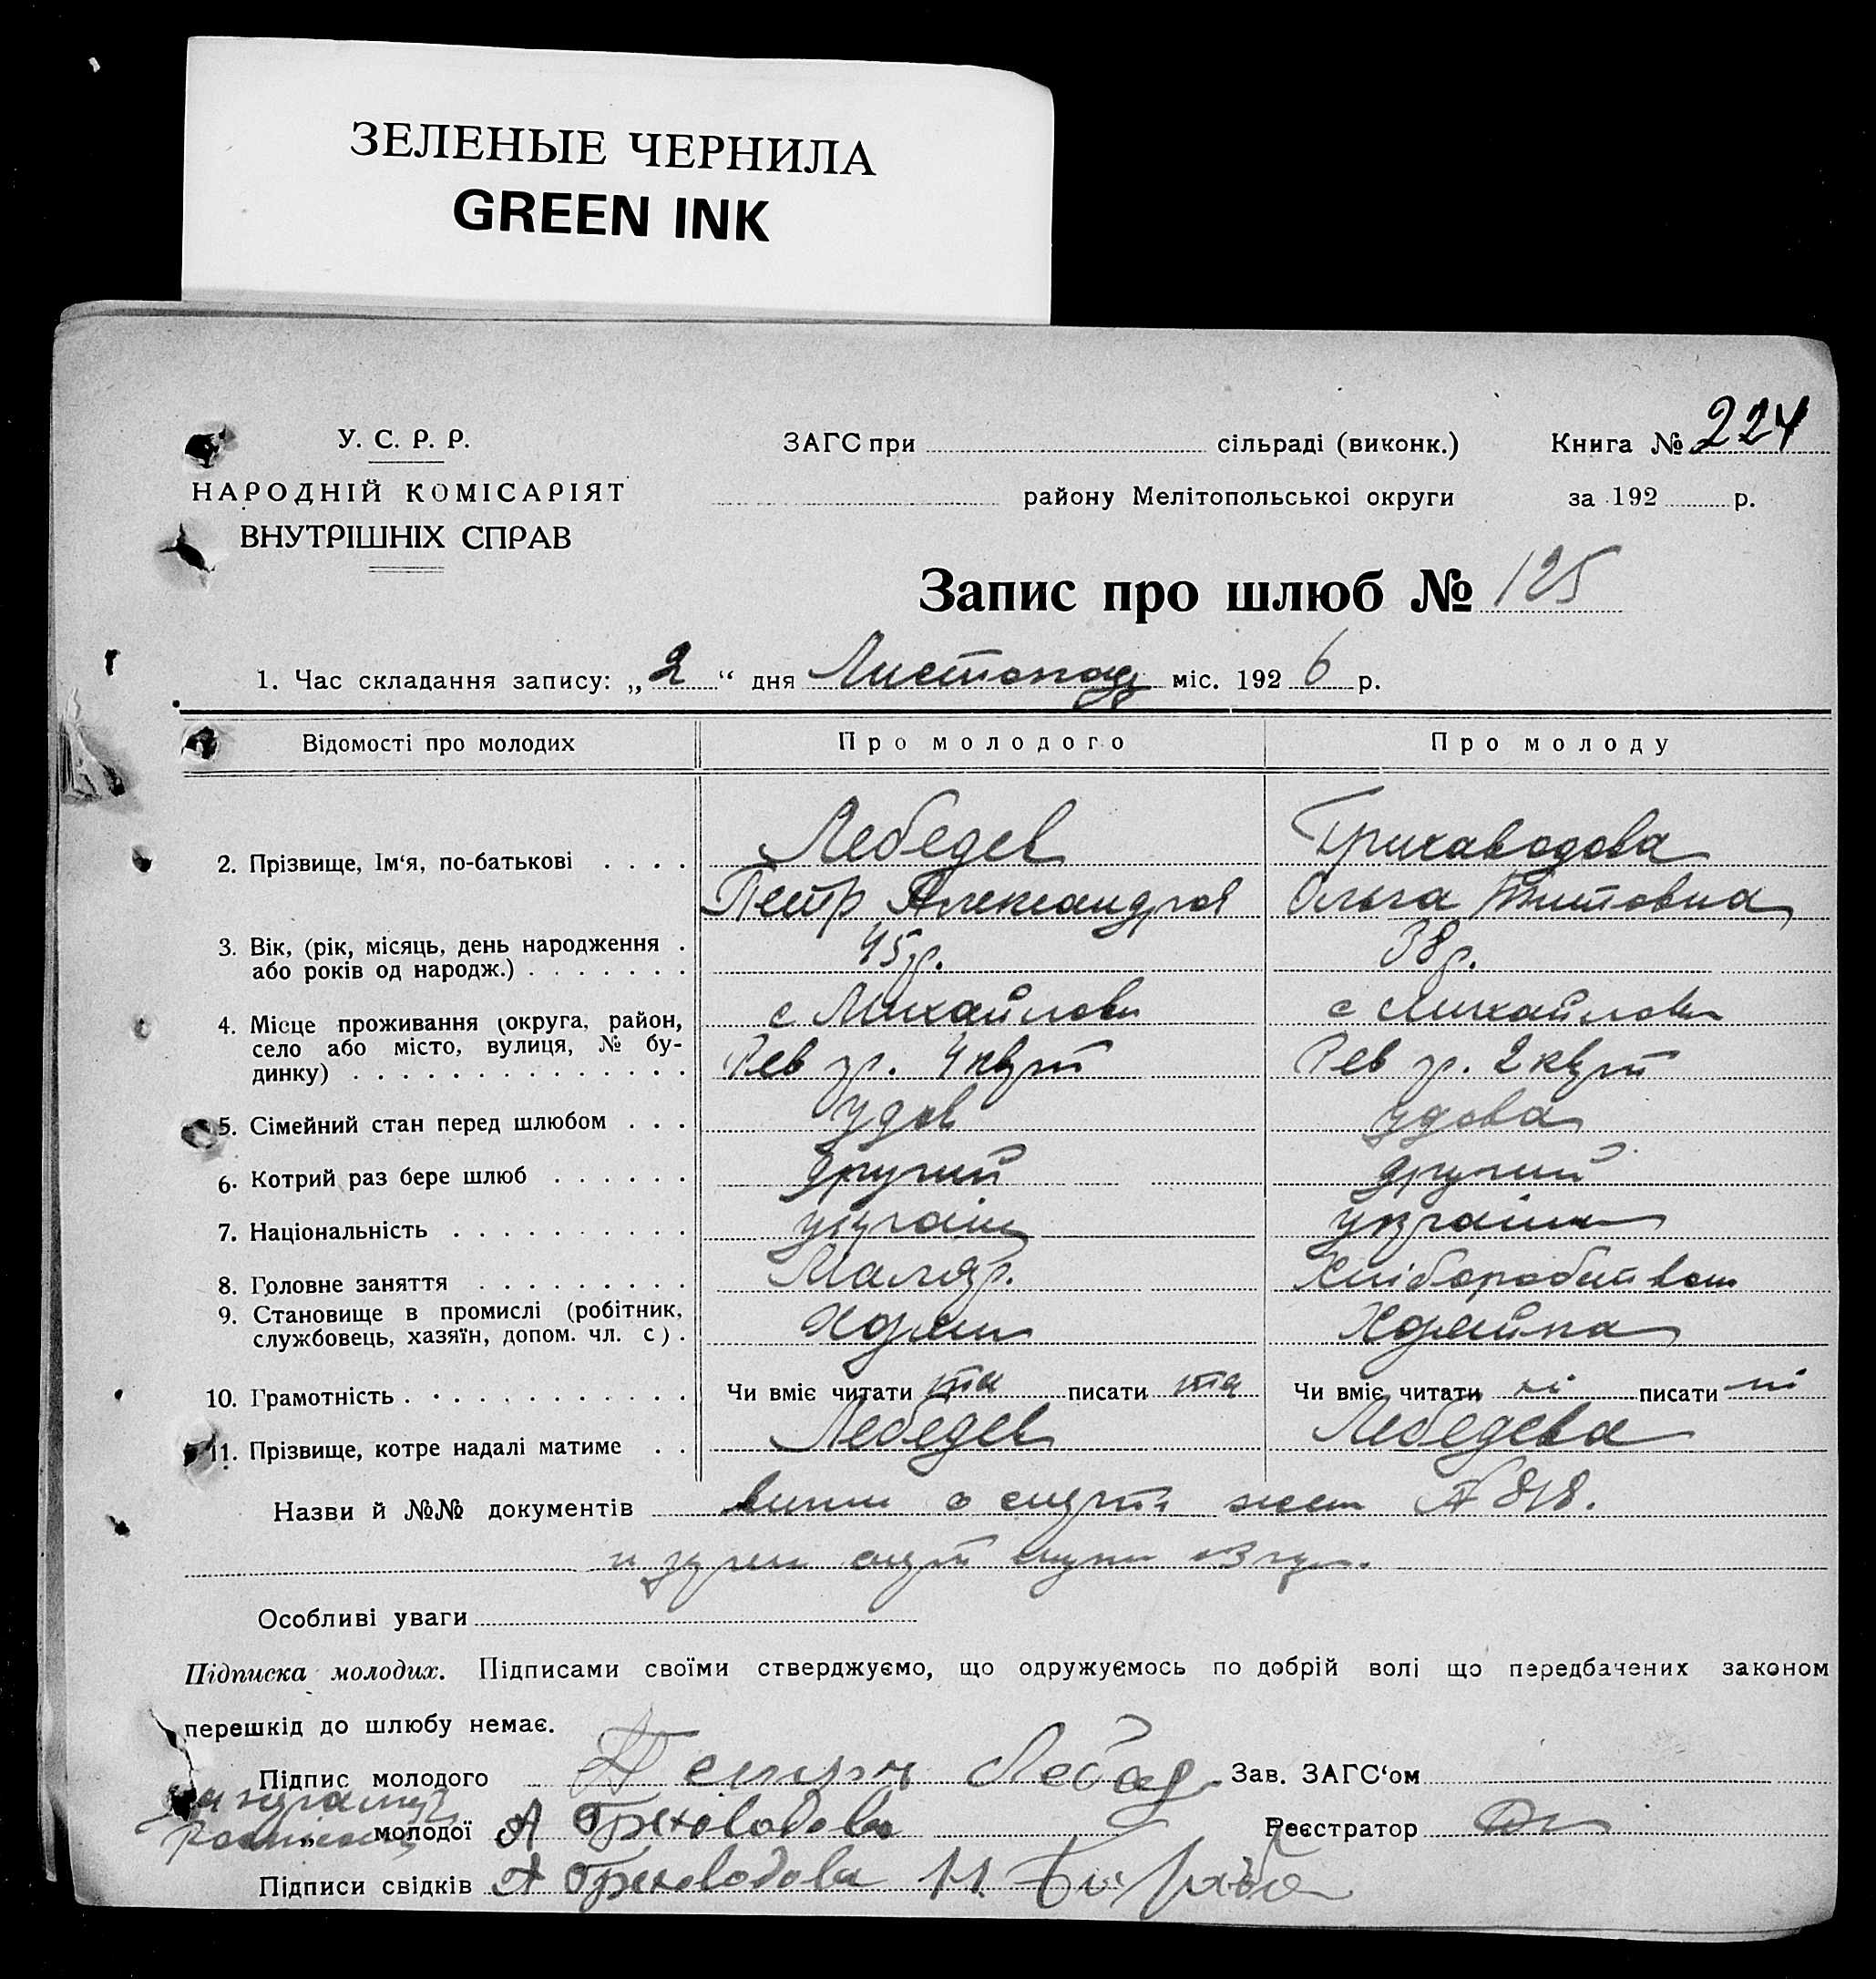 ЗЕЛЕНЫЕ ЧЕРНИЛА
GREEN INK
У. С. Р. Р.
НАРОДНІЙ КОМІСАРІЯТ
ВНУТРІШНІХ СПРАВ
ЗАГС при сільраді (виконк.) Книга № 224
району Мелітопольської округи за 192 р.
Запис про шлюб № 125
1. Час складання запису: „2“ дня Листопад міс. 1926 р.
Відомості про молодих Про молодого Про молоду
2. Прізвище, Ім‘я, по-батькові Лебедев
Петр Александров Ольга Титовна
3. Вік, (рік, місяць, день народження 45 р. 38 р.
або років од народж.)
4. Місце проживання (округа, район, с Михайловк с Михайловк
село або місто, вулиця, № бу-
динку) Рев гр. 4 кварт Рев гр. 2 кварт
5. Сімейний стан перед шлюбом удов удова
6. Котрий раз бере шлюб другий другий
7. Національність україн україн
8. Головне заняття Маляр. Хліборобство
9. Становище в промислі (робітник,
службовець, хазяїн, допом. чл. с)
10. Грамотність Чи вміє читати та писати та Чи вміє читати ні писати ні
11. Прізвище, котре надалі матиме Лебедев Лебедева
Назви й №№ документів о смерти жен № 818.
Особливі уваги
Підписка молодих. Підписами своїми стверджуємо, що одружуємось по добрій волі що передбачених законом
перешкід до шлюбу немає.
Підпис молодого Зав. ЗАГС‘ом
молодої А Греховодова Реєстратор
Підписи свідків А Греховодова